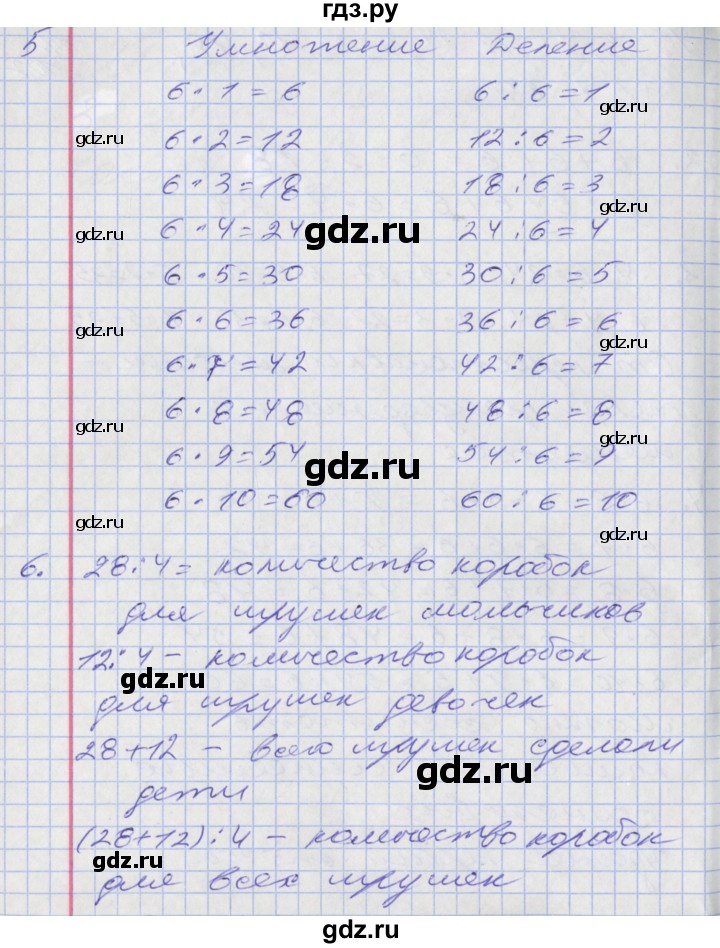 гдз.ру
5 Умножение Деление
6 · 1 = 6 6 : 6 = 1
gdz.ru
gdz.ru 6 · 2 = 12 12 : 6 = 2
6 · 3 = 18 18 : 6 = 3
gdz.ru
gdz.ru 6 · 4 = 24 gdz.ru 24 : 6 = 4
6 · 5 = 30 30 : 6 = 5
gdz.ru 6 · 6 = 36 36 : 6 = 6
gdz.ru
6 · 7 = 42 42 : 6 = 7
gdz.ru 6 · 8 = 48 48 : 6 = 8
gdz.ru
6 · 9 = 54 gdz.ru 54 : 6 = 9
6 · 10 = 60 60 : 6 = 10
gdz.ru gdz.ru
6. 28 : 4 = количество коробок
для игрушек мальчиков
12 : 4 – количество коробок
gdz.ru
для игрушек девочек
28 + 12 – всего игрушек сделали
gdz.ru
дети
(28 + 12) : 4 – количество коробок
gdz.ru
для всех игрушек
gdz.ru